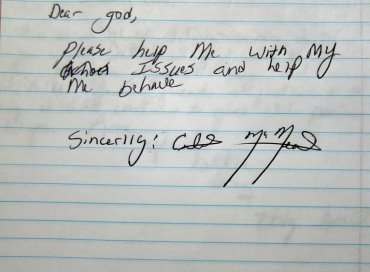 Dear god,
please help Me with My
Issues and help
Me behave
Sincerily: